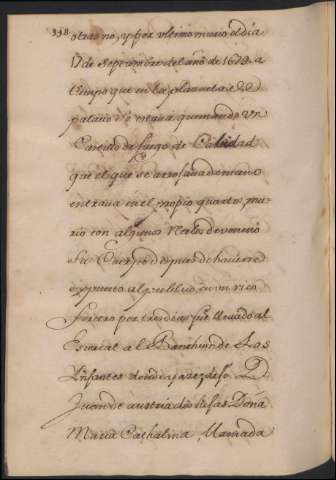 398
otro no, y por ultimo murio el dia
17 de septiembre del año de 1679. a
tiempo que en la plazuela de
palacio se estava quemando un
Castillo de fuego de Calidad
que el que se arrojava de mano
entrava en el propio quarto, mu
rio con algunos de veneno
su Cuerpo despues de haverse
expuesto al publico, en un rico
feretro por tres dias fue llevado al
Escurial a el Pantheon de Los
Ynfantes donde yaze; dejo D.
Juan de austria dos hijas Doña
Maria Cathalina llamada